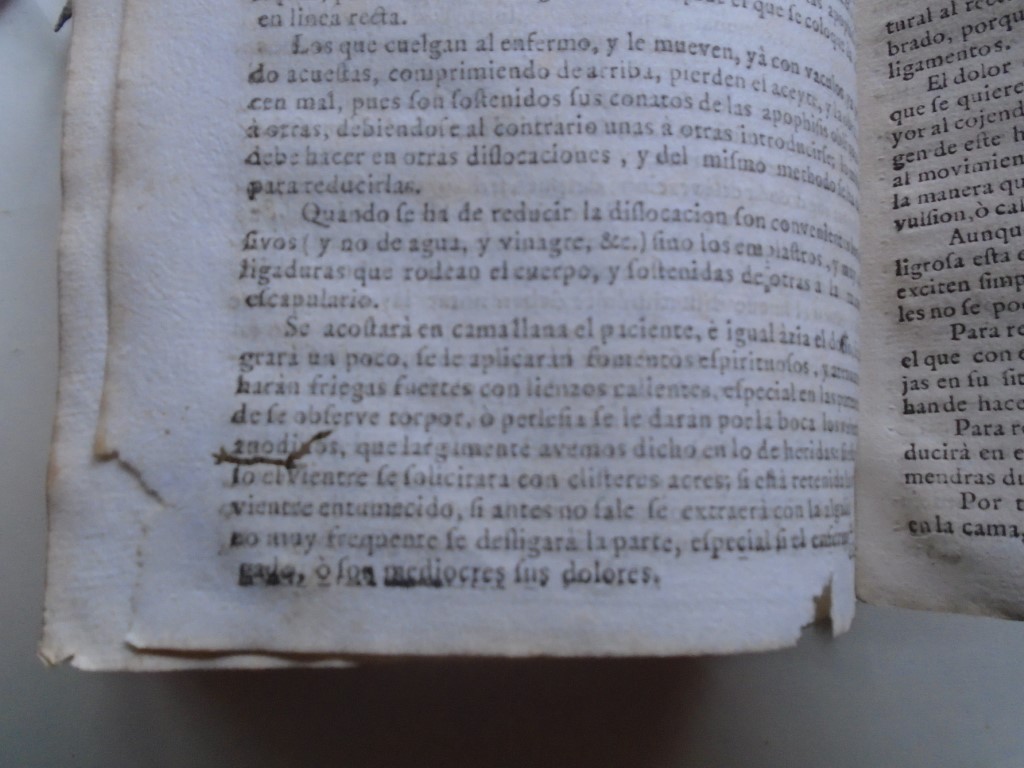 que se coloque
en linea recta.
Los que cuelgan al enfermo, y le mueven, yà con
do acuestas, comprimiendo de arriba, pierden el aceyte, y
cen mal, pues son sostenidos sus conatos de las apophisis
à otras, debiendose al contrario unas à otras introducirse,
debe hacer en otras dislocaciones, y del mismo methodo
para reducirlas.
Quando se ha de reducir la dislocacion son
sivos (y no de agua, y vinagre, &c.) sino los emplastros, y
ligaduras que rodean el cuerpo, y sostenidas de otras à la
escapulario.
Se acostarà en cama llana el paciente, è
grarà un poco, se le aplicaràn fomentos espirituosos, y
haràn friegas fuertes con lienzos calientes, especial en las
de se observe torpor, ò perlesia se le daràn por la boca los
anodinos, que largamente avemos dicho en lo de heridas
so el vientre se solicitarà con clisteres acres; si està
vientre entumecido, si antes no sale se extraerà con la
no muy frequente se desligarà la parte, especial si el
gado, ò son mediocres sus dolores.
tural al
brado, porqu
ligamentos.
El dolor
que se quiere
yor al cojend
gen de este h
al movimien
la manera qu
vulsion, ò cal
Aunqu
ligrosa esta
exciten simp
les no se po
Para re
el que con
jas en su sit
han de hace
Para re
ducirà en e
mendras du
Por t
en la cama,